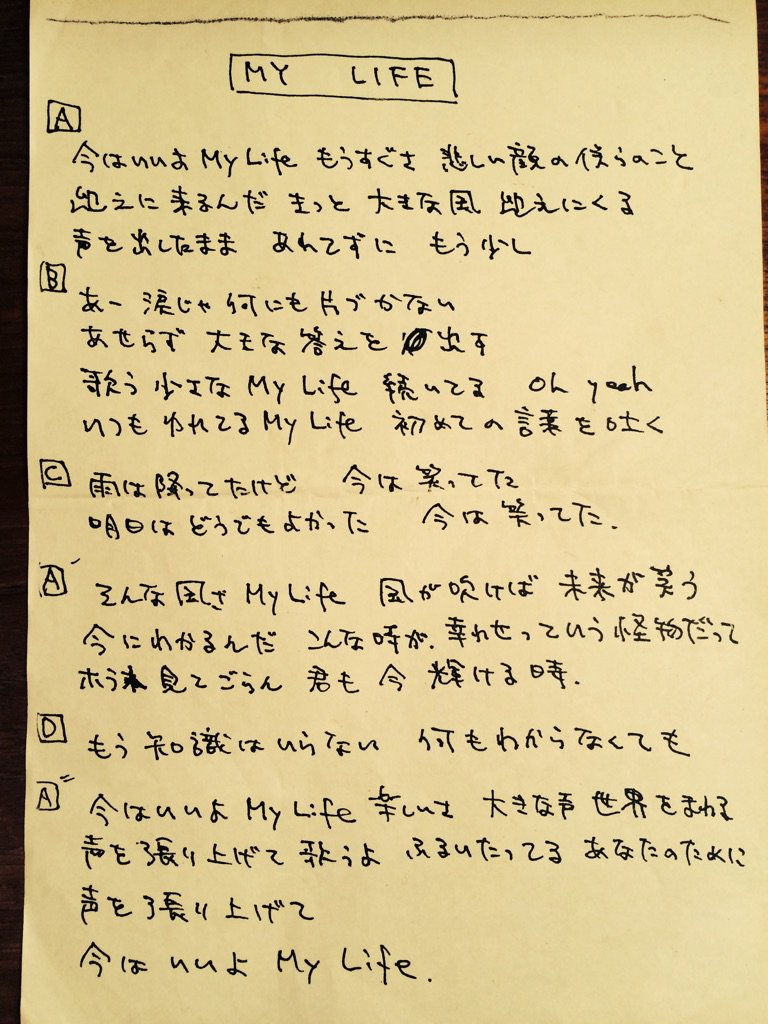 MY LIFE
A
今はいいよ My Life もうすぐさ 悲しい顔の
に来るんだ きっと 大きな風 にくる
声を出したまま あわてずに もう少し
B
あー 涙じゃ何にも片づかない
あせらず 大きな答えを 出す
歌う 少さな My Life 続いてる Oh yeah
いつも ゆれてる My Life 初めての言葉を吐く
C
雨は降ってたけど 今は笑ってた
明日はどうでもよかった 今は笑ってた.
A´
そんな風さ My Life 風が吹けば 未来が笑う
今にわかるんだ こんな時が. 幸わせっていう怪物だって
ホラ 見てごらん 君も 今 輝ける時.
D
もう 知識はいらない 何もわからなくても
A´´
今はいいよ My Life 楽しいさ 大きな声 世界をまわる
声を張り上げて 歌うよ ふるいたってる あなたのために
声を張り上げて
今は いいよ My Life.